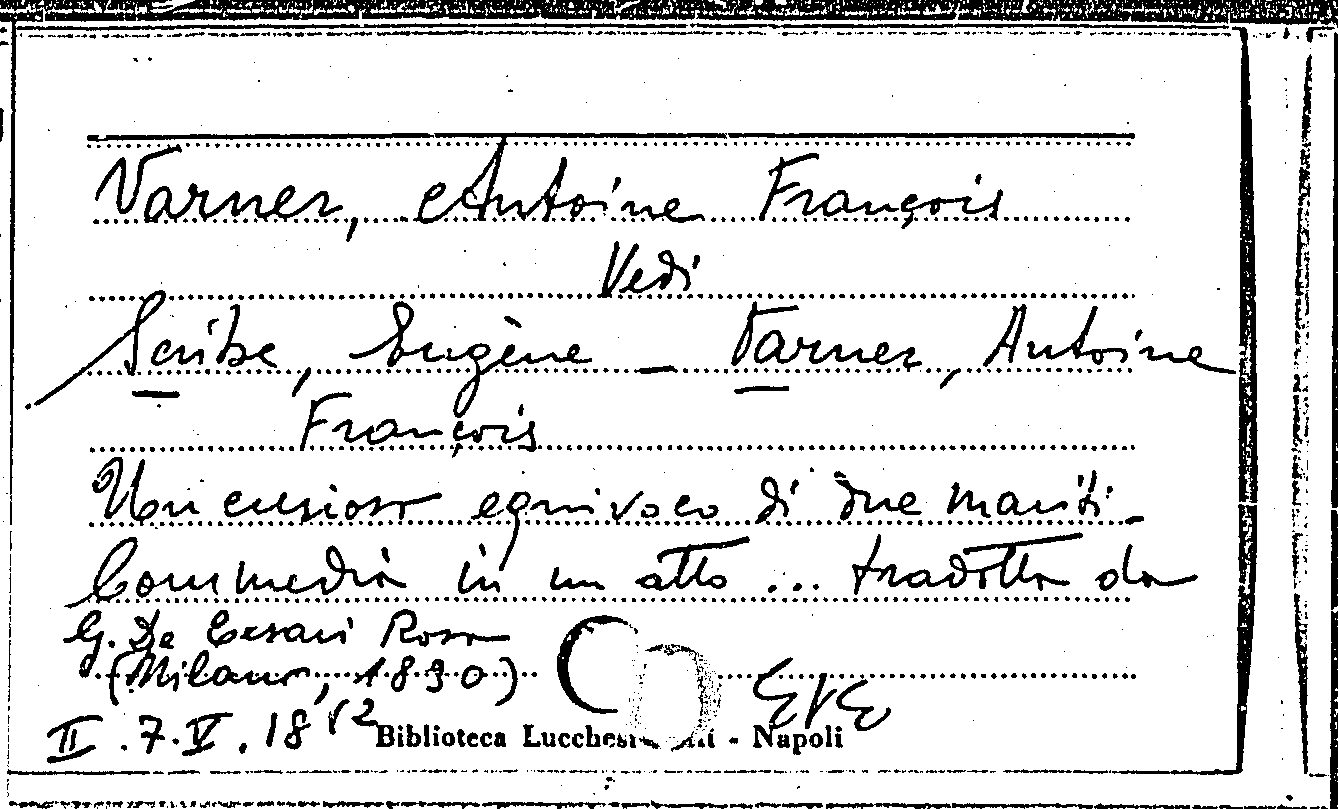 Varner, Antoine François
Vedi
Scribe, Eugène - Varner, Antoine
François
Un curioso equivoco di due mariti.
Commedia in un atto ... tradotta da
G. De Cesari Rosa
(Milano, 1830)
II . 7. V . 18
Biblioteca - Napoli